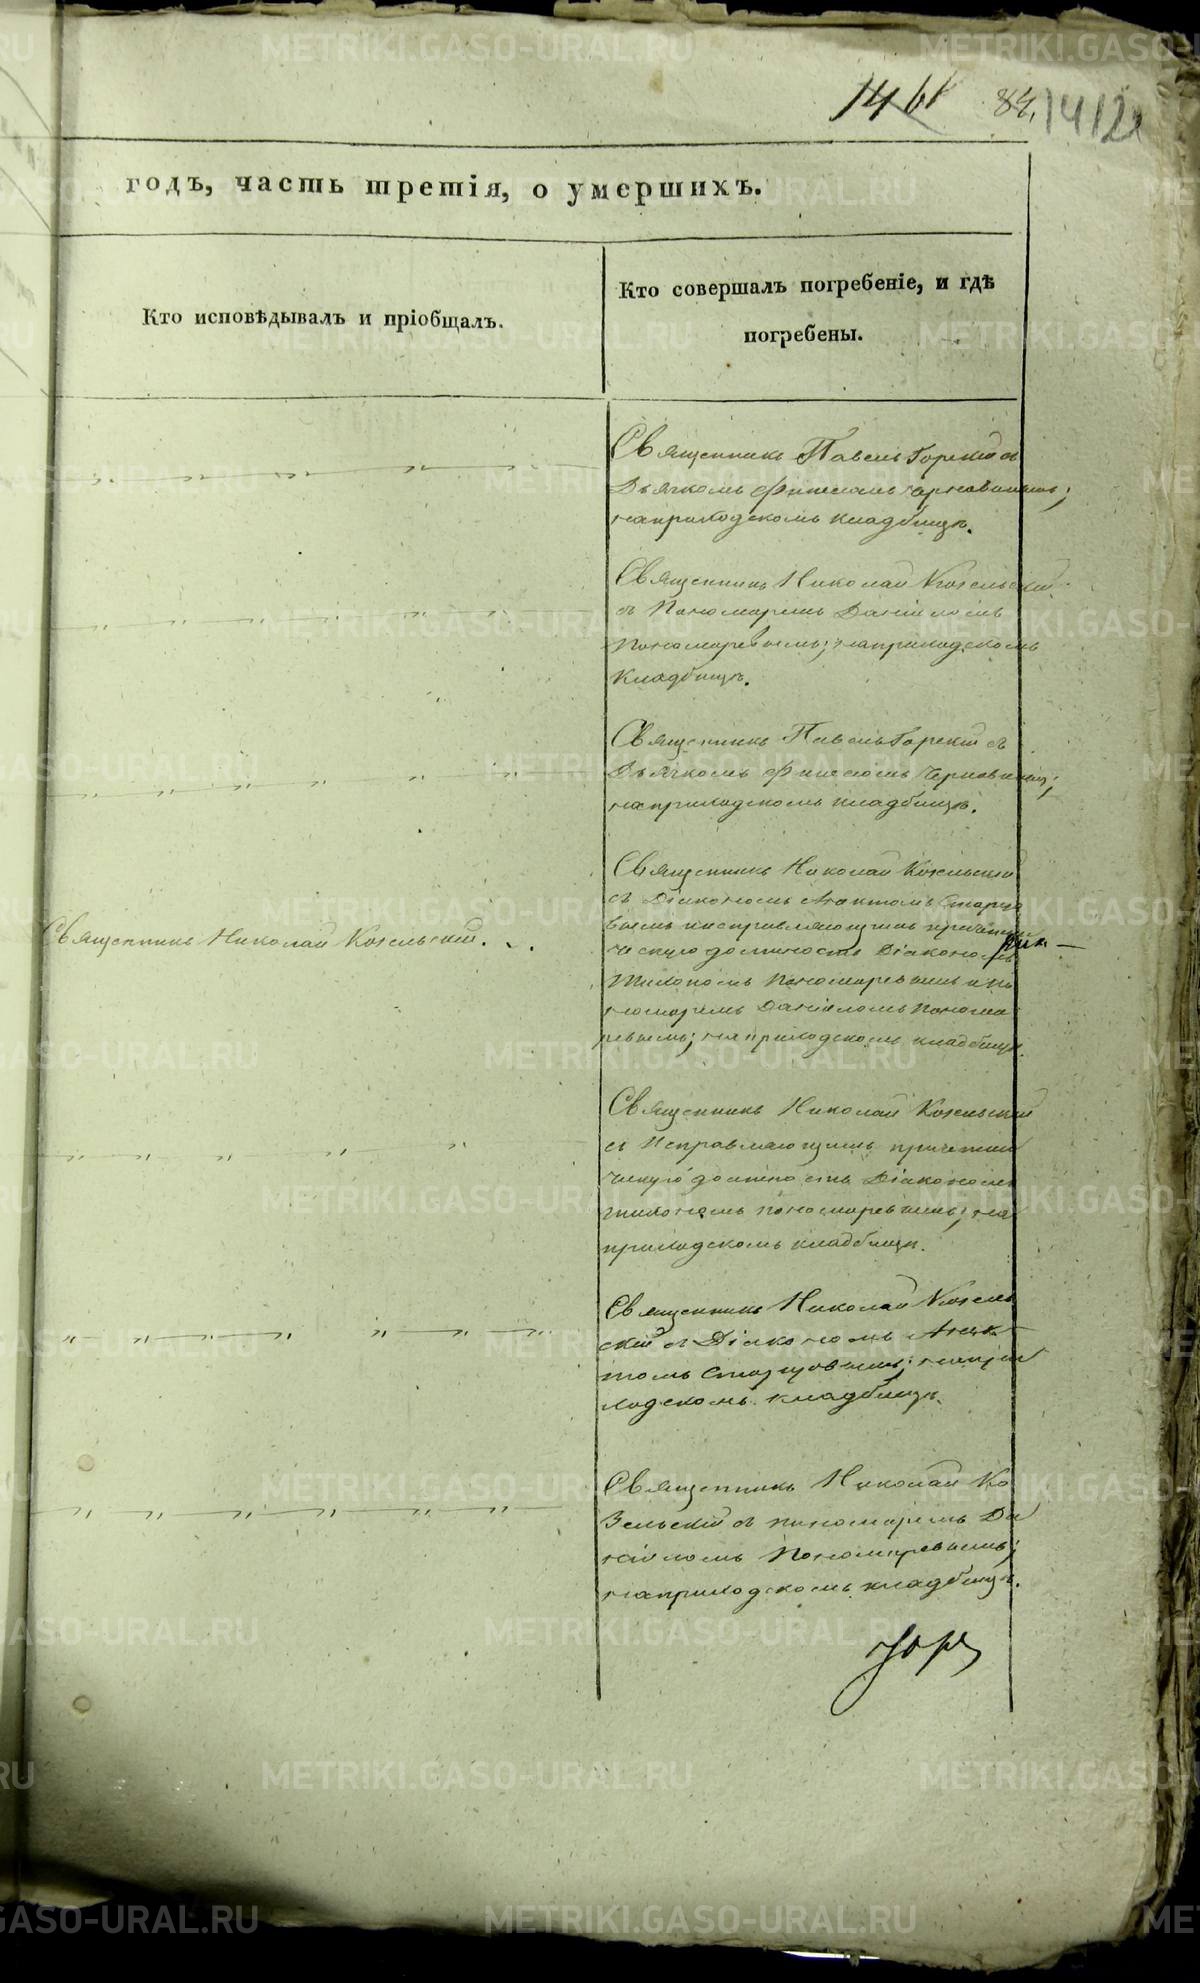 146 84. 1412
годъ, часть третія, о умершихъ.
Кто исповѣдывалъ и пріобщалъ.
Кто совершалъ погребеніе, и гдѣ
погребены.
Священникъ Павелъ Горскій съ
Дьячкомъ Финеесомъ Чернавинымъ;
на приходскомъ кладбищѣ.
Священникъ Николай Козельскій
съ Пономаремъ Даніиломъ
Пономаревымъ; на приходскомъ
кладбищѣ.
Священникъ Павелъ Горскій съ
Дьячкомъ Финеесомъ Чернавинымъ;
на приходскомъ кладбищѣ.
Священникъ Николай Козельскій.
Священникъ Николай Козельскій
съ Діакономъ Старцо
вымъ и исправляющимъ причетни
ческую должность Діакономъ
Пономаревымъ и по
номаремъ Даніиломъ Понома
ревымъ; на приходскомъ кладбищѣ.
Священникъ Николай Козельскій
съ Исправляющимъ причетни
ческую должность Діакономъ
Пономаревымъ; на
приходскомъ кладбищѣ.
Священникъ Николай Козель
скій съ Діакономъ
Старцовымъ; на при
ходскомъ кладбищѣ.
Священникъ Николай Ко
зельскій съ пономаремъ Да
ніиломъ Пономаревымъ;
на приходскомъ кладбищѣ.
METRIKI.GASO-URAL.RU